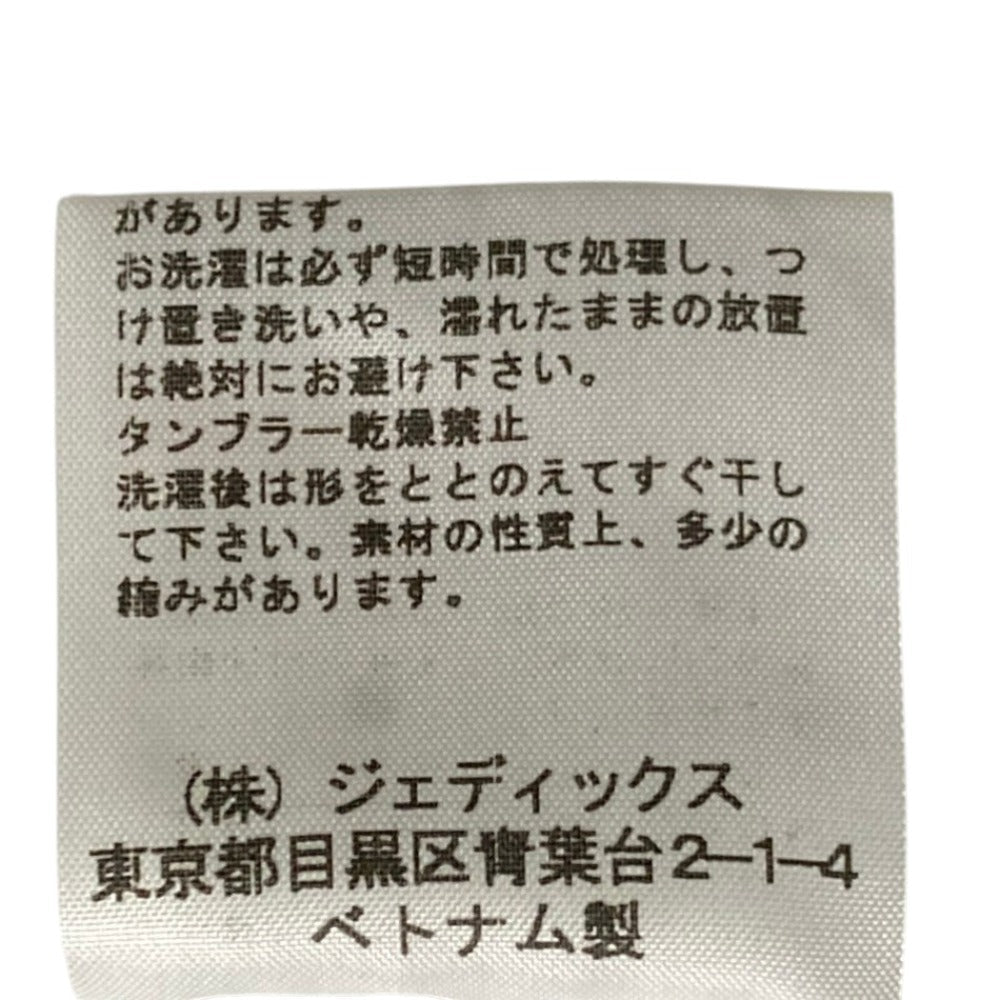 があります。
お洗濯は必ず短時間で処理し、つ
け置き洗いや、濡れたままの放置
は絶対にお避け下さい。
タンブラー乾燥禁止
洗濯後は形をととのえてすぐ干し
て下さい。素材の性質上、多少の
縮みがあります。
(株) ジェディックス
東京都目黒区青葉台2-1-4
ベトナム製